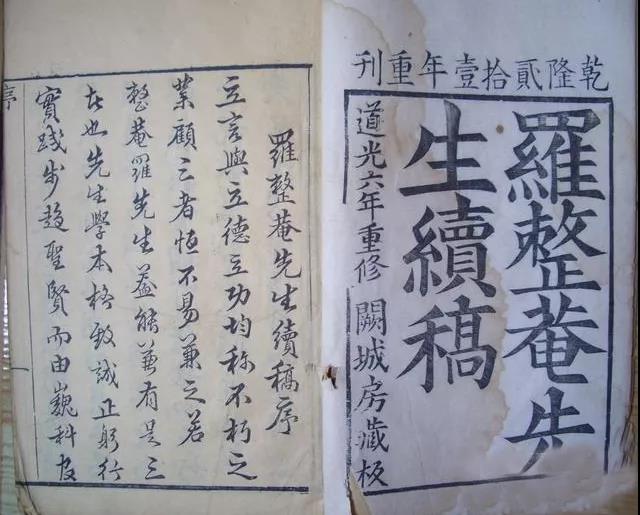 乾隆貳拾壹年重刊
羅整菴先
生續稿
道光六年重修 闕城房藏板
羅整菴先生續稿序
立言與立德立功均称不朽之
業顧三者恒不易兼之若
整菴羅先生蓋能兼有是三
者也先生學本格致誠正躬行
實踐步趨聖賢而由巍科官
序